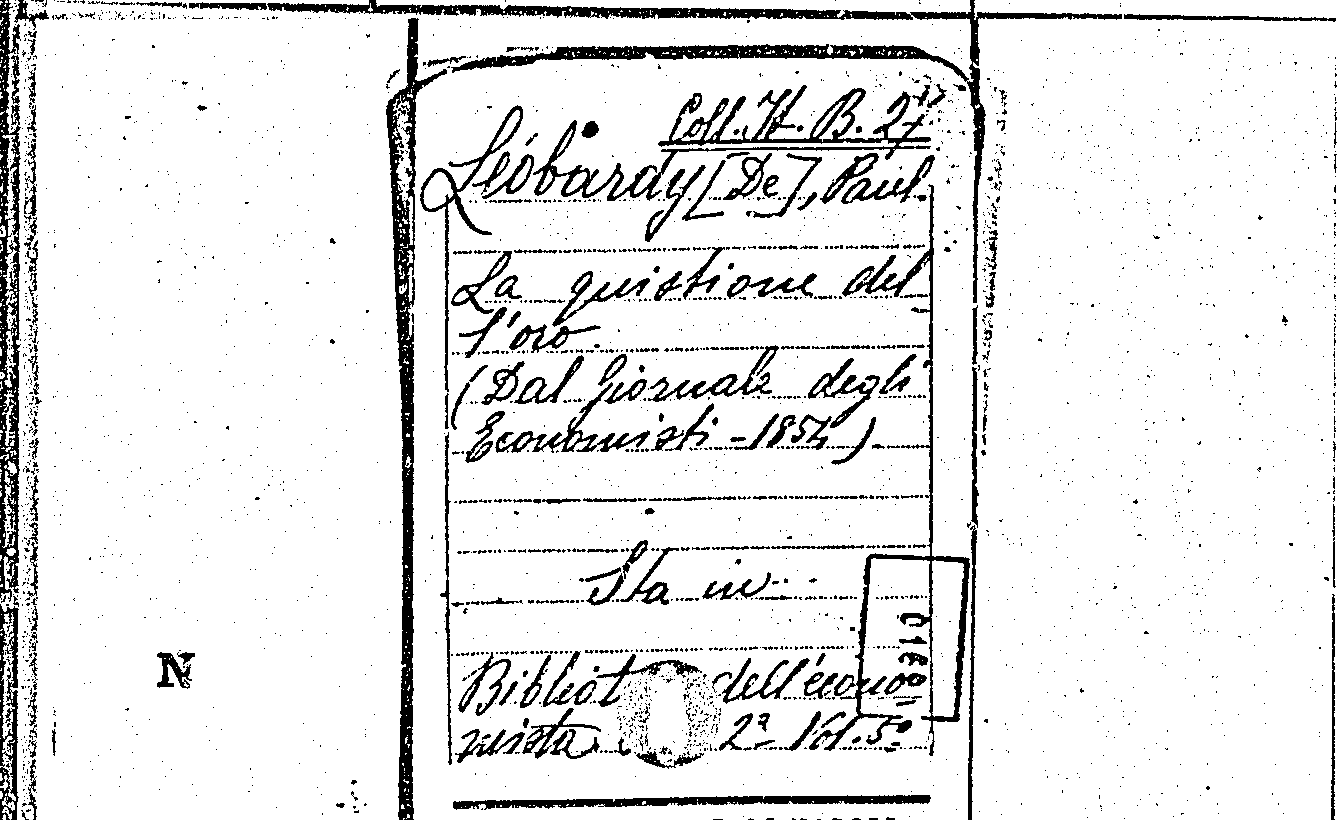 Coll. It. B. 27
Leóbardy [De], Paul.
La quistione del
l'oro.
(Dal Giornale degli
Economisti - 1854)
Sta in
Bibliot dell'écono
mista. 2ª Vol. 5º
N